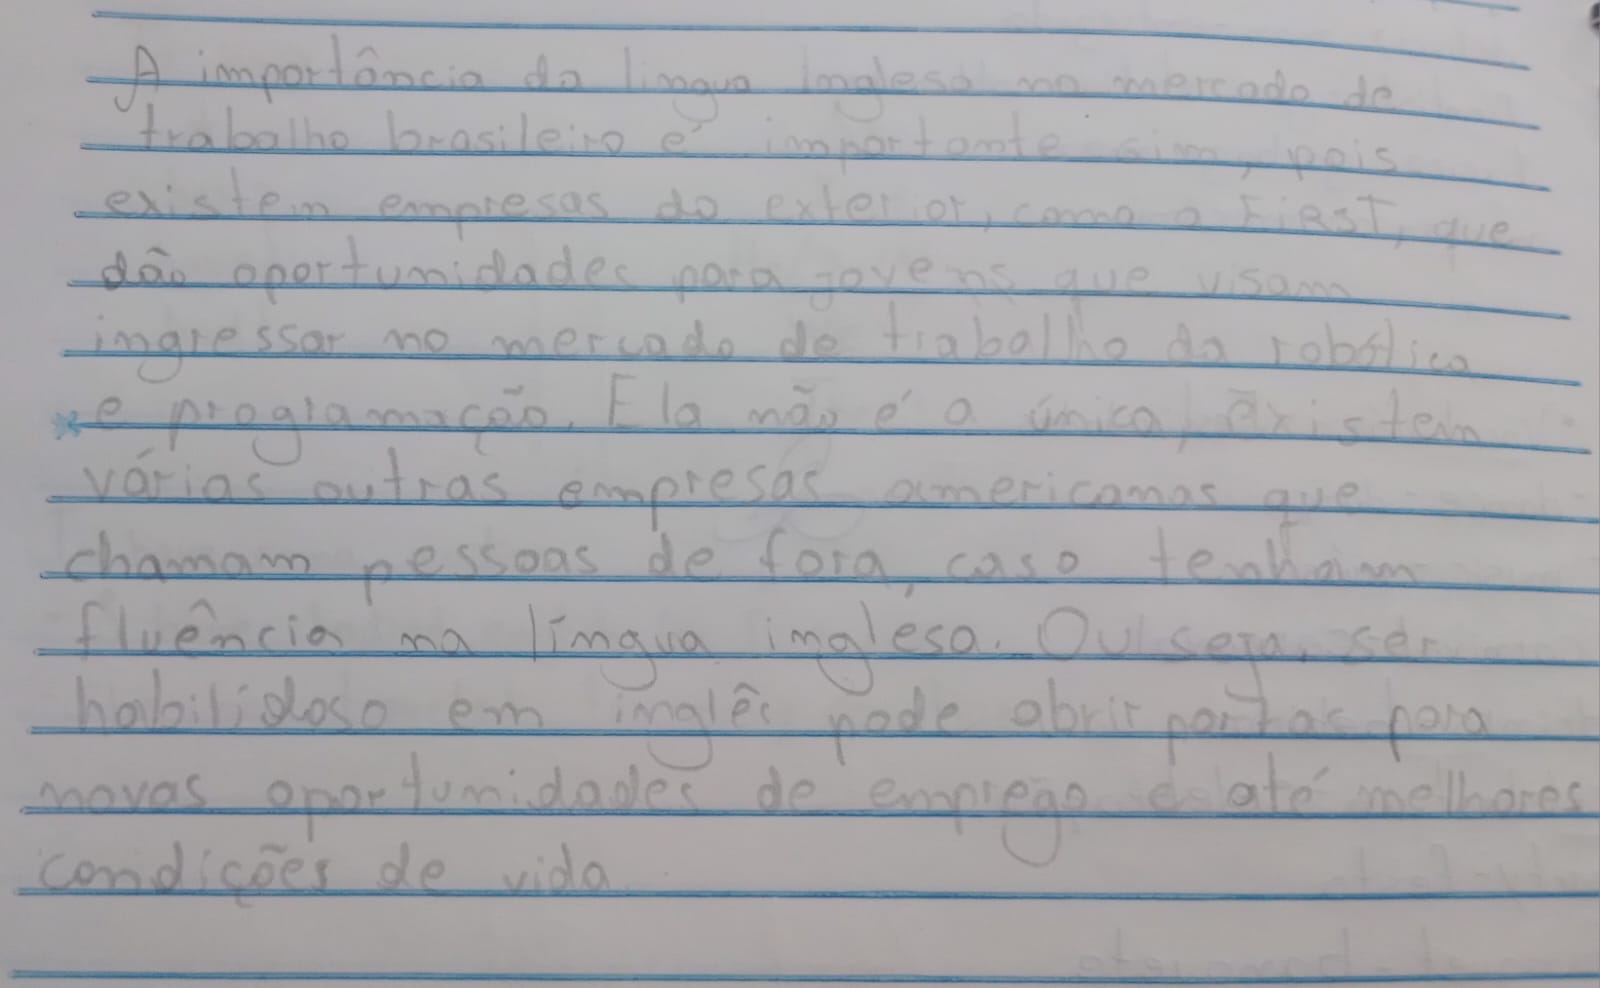 A importância da lingua inglesa no mercado de
trabalho brasileiro é importante sim, pois
existem empresas do exterior, como a FIRST, que
dão oportunidades para jovens que visam
ingressar no mercado de trabalho da robótica
e programação. Ela não é a única, existem
várias outras empresas americanas que
chamam pessoas de fora, caso tenham
fluência na língua inglesa. Ou seja, ser
habilidoso em inglês pode abrir portas para
novas oportunidades de emprego e até melhores
condições de vida